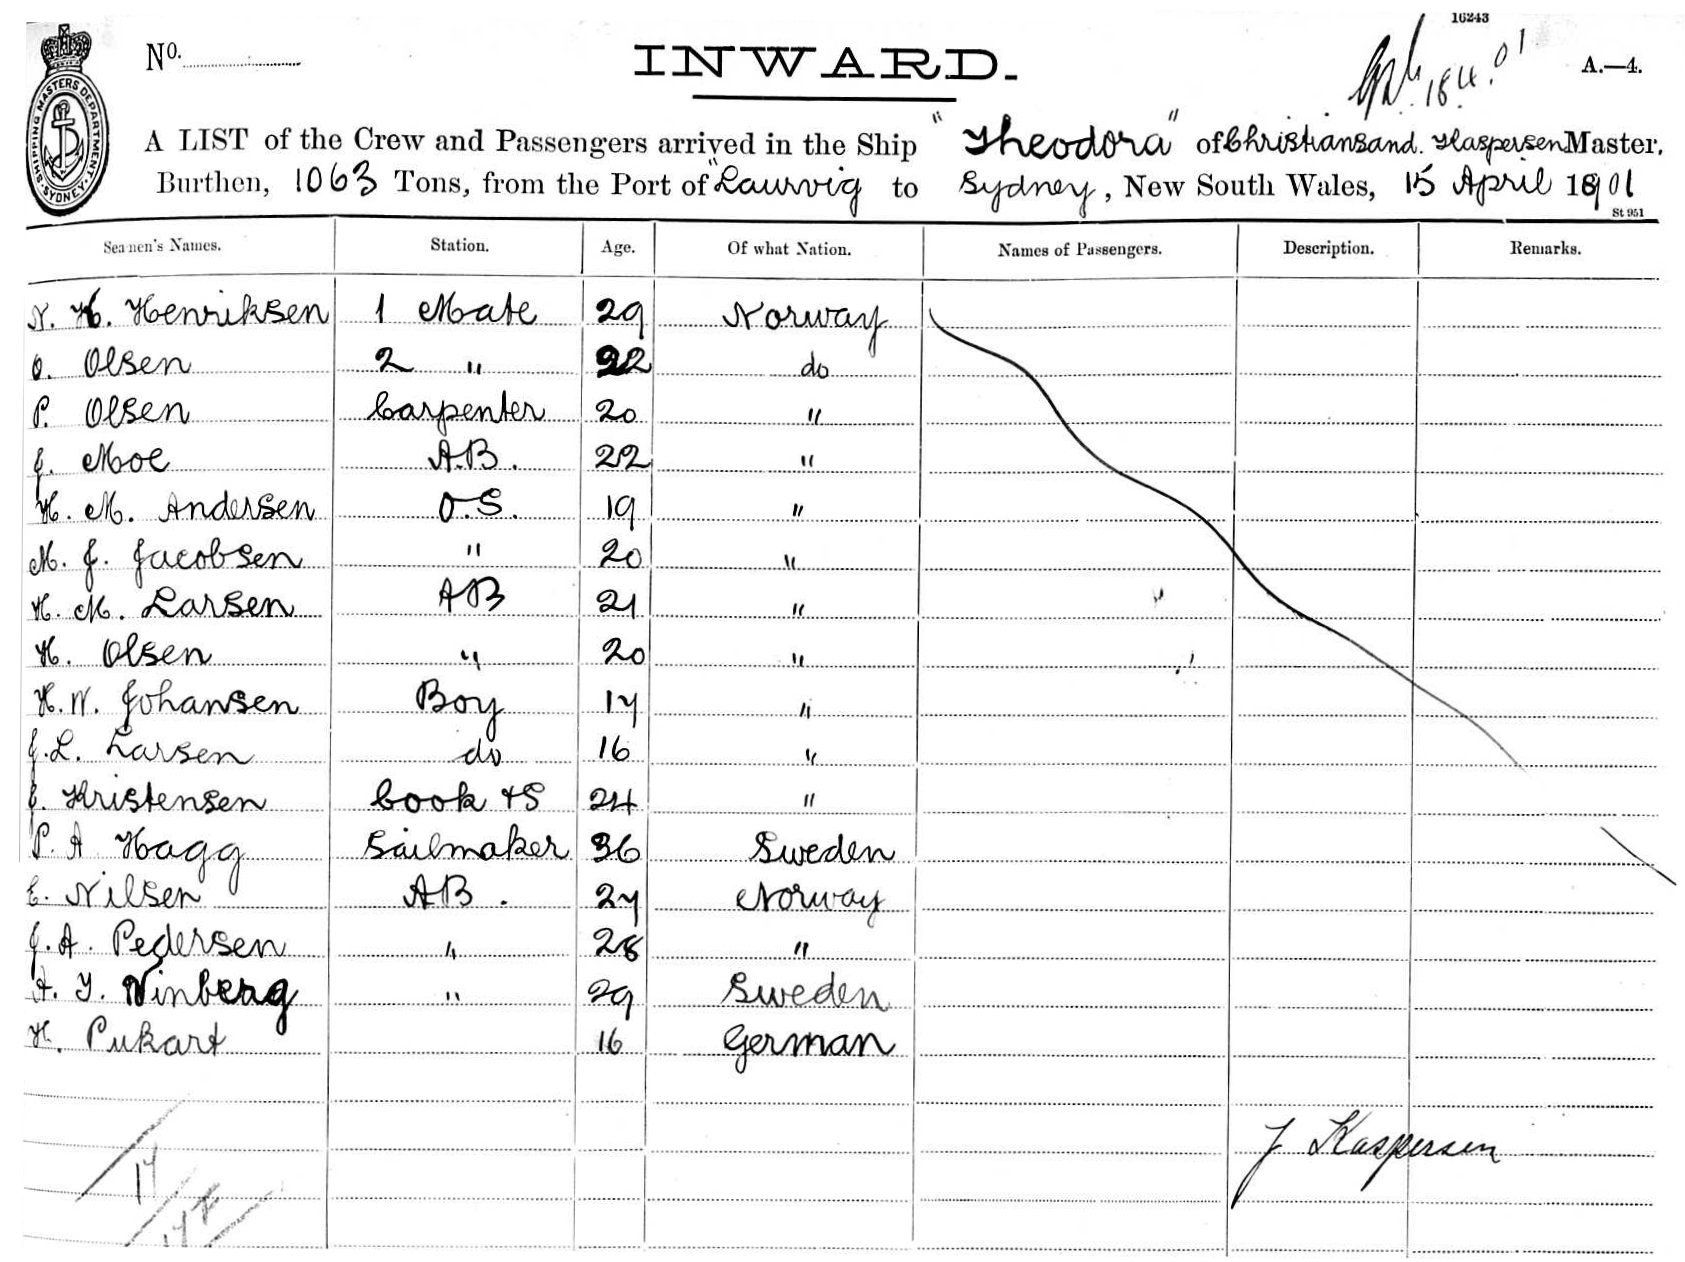 16243
No.
INWARD.
18.4.01
A.—4.
SHIPPING MASTERS DEPARTMENT. SYDNEY.
A LIST of the Crew and Passengers arrived in the Ship "Theodora" of Christiansand. Kaspersen Master,
Burthen, 1063 Tons, from the Port of "Laurvig to Sydney, New South Wales, 15 April 1901
St 951
Seamen's Names. Station. Age. Of what Nation. Names of Passengers. Description. Remarks.
N. H. Henriksen 1 Mate 29 Norway
O. Olsen 2 " 22 do
P. Olsen Carpenter 20 "
J. Moe A.B. 22 "
H. M. Andersen O.S. 19 "
M. J. Jacobsen " 20 "
H. M. Larsen AB 21 "
H. Olsen " 20 "
H. W. Johansen Boy 17 "
J. L. Larsen do 16 "
Kristensen Cook & S 24 "
P. A Hagg Sailmaker 36 Sweden
E. Nilsen AB. 27 Norway
J. A. Pedersen " 28 "
A. Y. Winberg " 29 Sweden
H. Pukart 16 German
J Kaspersen
17